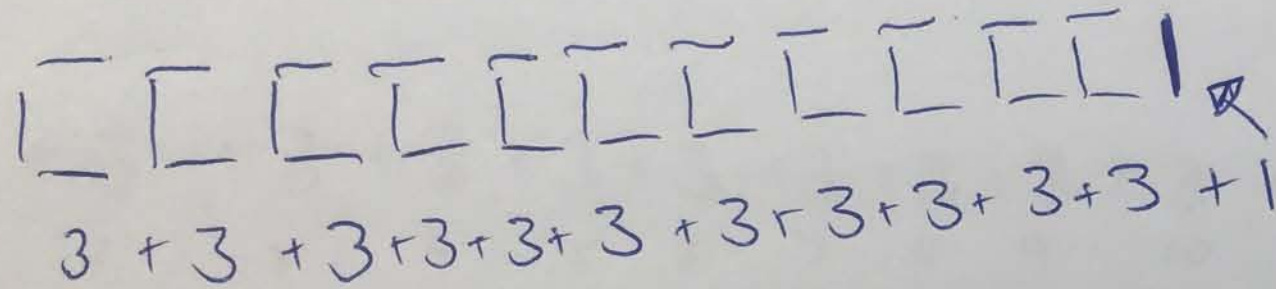 3 + 3 + 3 + 3 + 3 + 3 + 3 + 3 + 3 + 3 + 3 + 1